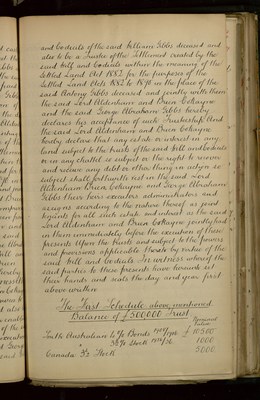 and Codicils of the said William Gibbs deceased and
also to be a Trustee of the Settlement created by the
said Will and Codicils within the meaning of the
Settled Land Act 1882 for the purposes of the
Settled Land Acts 1882 to 1890 in the place of the
said Antony Gibbs deceased and jointly with them
the said Lord Aldenham and Brien Cokayne
and the said George Abraham Gibbs hereby
declares his acceptance of such Trusteeship And
the said Lord Aldenham and Brien Cokayne
hereby declare that any estate or interest in any
land subject to the trusts of the said Will and Codicils
or in any chattel so subject or the right to recover
and receive any debt or other thing in action so
subject shall forthwith vest in the said Lord
Aldenham Brien Cokayne and George Abraham
Gibbs their heirs executors administrators and
assigns according to the nature thereof as joint
tenants for all such estate and interest as the said
Lord Aldenham and Brien Cokayne jointly had
in them immediately before the execution of these
presents Upon the trusts and subject to the powers
and provisions applicable thereto by virtue of the
said Will and Codicils In witness whereof the
said parties to these presents have hereunto set
their hands and seals the day and year first
above written
The First Schedule above mentioned
Balance of £500,000 Trust
Nominal
South Australian 4 % Bonds
£ 10500
Stock
1000
Canada Stock
5000